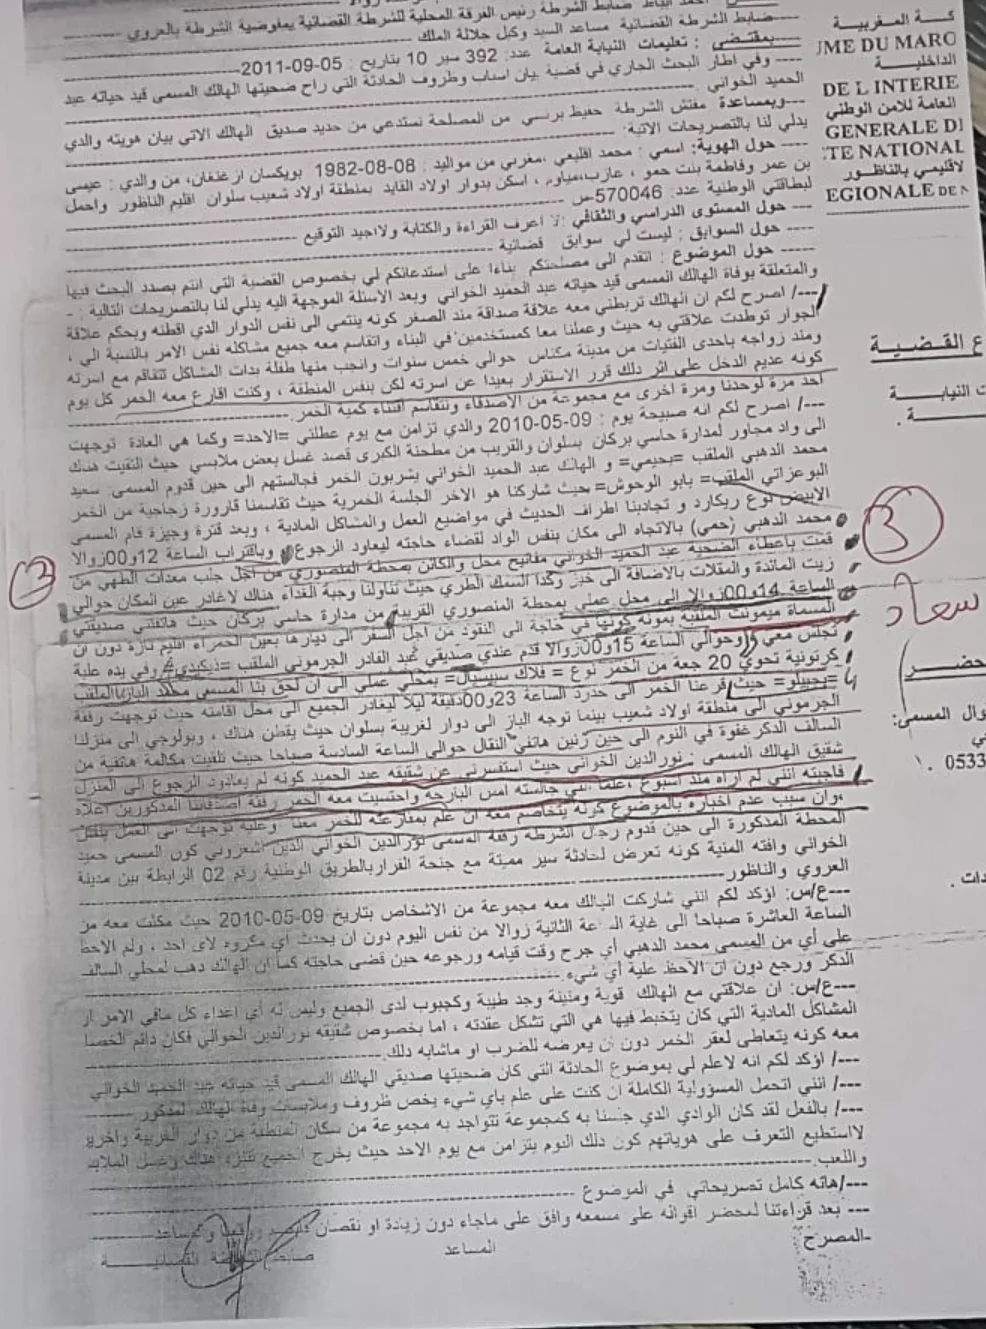 ضابط الشرطة رئيس الفرقة المحلية للشرطة القضائية بمفوضية الشرطة بالعروي
---ضابط الشرطة القضائية مساعد السيد وكيل جلالة الملك
---بمقتضى : تعليمات النيابة العامة عدد: 392 سير 10 بتاريخ : 05-09-2011
---- وفي اطار البحث الجاري في قضية بيان اسباب وظروف الحادثة التي راح ضحيتها الهالك المسمى قيد حياته عبد
الحميد الخواني
---وبمساعدة مفتش الشرطة حفيظ برنسي من المصلحة نستدعي من جديد صديق الهالك الاتي بيان هويته والدي
يدلي لنا بالتصريحات الاتية:
--- حول الهوية: اسمي : محمد اقليعي ،مغربي من مواليد : 08-08-1982 بويكسان ازغنغان، من والدي : عيسى
بن عمر وفاطمة بنت حمو ، عازب،مياوم ، اسكن بدوار اولاد القايد بمنطقة اولاد شعيب سلوان اقليم الناظور واحمل
لبطاقتي الوطنية عدد: 570046-س
--- حول المستوى الدراسي والثقافي :لا اعرف القراءة والكتابة ولااجيد التوقيع
---- حول السوابق : ليست لي سوابق قضائية
---- حول الموضوع : اتقدم الى مصلحتكم بناءا على استدعائكم لي بخصوص القضية التي انتم بصدد البحث فيها
والمتعلقة بوفاة الهالك المسمى قيد حياته عبد الحميد الخواني وبعد الاسئلة الموجهة اليه يدلي لنا بالتصريحات التالية : -
---/ اصرح لكم ان الهالك تربطني معه علاقة صداقة مند الصغر كونه ينتمي الى نفس الدوار الدي اقطنه وبحكم علاقة
الجوار توطدت علاقتي به حيث وعملنا معا كمستخدمين في البناء واتقاسم معه جميع مشاكله نفس الامر بالنسبة الي ،
ومند زواجه باحدى الفتيات من مدينة مكناس حوالي خمس سنوات وانجب منها طفلة بدات المشاكل تتفاقم مع اسرته
كونه عديم الدخل على اثر دلك قرر الاستقرار بعيدا عن اسرته لكن بنفس المنطقة ، وكنت اقارع معه الخمر كل يوم
احد مرة لوحدنا ومرة اخرى مع مجموعة من الاصدقاء ونتقاسم اقتناء كمية الخمر.
---/ اصرح لكم انه صبيحة يوم : 09-05-2010 والدي تزامن مع يوم عطلتي =الاحد= وكما هي العادة توجهت
الى واد مجاور لمدارة حاسي بركان بسلوان والقريب من مطحنة الكبرى قصد غسل بعض ملابسي حيث التقيت هناك
محمد الدهبي الملقب =بحيمي= و الهالك عبد الحميد الخواني يشربون الخمر فجالستهم الى حين قدوم المسمى سعيد
البوعزاتي الملقب= بابو الوحوش= بحيث شاركنا هو الاخر الجلسة الخمرية حيث تقاسمنا قارورة زجاجية من الخمر
الابيض نوع ريكارد و تجادبنا اطراف الحديث في مواضيع العمل والمشاكل المادية ، وبعد فترة وجيزة قام المسمى
محمد الدهبي (حمي) بالاتجاه الى مكان بنفس الواد لقضاء حاجته ليعاود الرجوع وباقتراب الساعة 12و00زوالا
قمت باعطاء الضحية عبد الحميد الخواني مفاتيح محل والكائن بمحطة المنصوري من اجل جلب معدات الطهي من
زيت المائدة والمقلات بالاضافة الى خبز وكدا السمك الطري حيث تناولنا وجبة الغداء هناك لاغادر عين المكان حوالي
الساعة 14و00زوالا الى محل عملي بمحطة المنصوري القريبة من مدارة حاسي بركان حيث هاتفتني صديقتي
المسماة ميمونت الملقبة بمونة كونها في حاجة الى النقود من اجل السفر الى ديارها بعين الحمراء اقليم تازة دون ان
تجلس معي وحوالي الساعة 15و00زوالا قدم عندي صديقي عبد القادر الجرموني الملقب =ديكيدي= وفي يده علبة
كرتونية تحوي 20 جعة من الخمر نوع = فلاك سبيسيال= بمحلي عملي الى ان لحق بنا المسمى محمد الباز الملقب
=بجيبلو= حيث قرعنا الخمر الى حدود الساعة 23و00دقيقة ليلا ليغادر الجميع الى محل اقامته حيث توجهت رفقة
الجرموني الى منطقة اولاد شعيب بينما توجه الباز الى دوار لغريبة بسلوان حيث يقطن هناك ، وبولوجي الى منزلنا
السالف الدكر غفوة في النوم الى حين رنين هاتفي النقال حوالي الساعة السادسة صباحا حيث تلقيت مكالمة هاتفية من
شقيق الهالك المسمى : نورالدين الخواني حيث استفسرني عن شقيقه عبد الحميد كونه لم يعاود الرجوع الى المنزل
فاجبته انني لم اراه منذ اسبوع ،علما انني جالسته امس البارحة واحتسيت معه الخمر رفقة اصدقائنا المدكورين اعلاه
،وان سبب عدم اخباره بالموضوع كونه يتخاصم معه ان علم بمقارعته للخمر معنا وعليه توجهت الى العمل بنفس
المحطة المدكورة الى حين قدوم رجال الشرطة رفقة المسمى نورالدين الخواني الدين اشعروني كون المسمى حميد
الخواني وافته المنية كونه تعرض لحادثة سير مميتة مع جنحة الفراربالطريق الوطنية رقم 02 الرابطة بين مدينة
العروي والناظور
---ع/س: اؤكد لكم انني شاركت الهالك معه مجموعة من الاشخاص بتاريخ 09-05-2010 حيث مكثت معه من
الساعة العاشرة صباحا الى غاية الساعة الثانية زوالا من نفس اليوم دون ان يحدث اي مكروه لاي احد ، ولم الاحظ
على أي من المسمى محمد الدهبي أي جرح وقت قيامه ورجوعه حين قضى حاجته كما ان الهالك دهب لمحلي السالف
الدكر ورجع دون ان الاحظ علية أي شيء.
---ع/س: ان علاقتي مع الهالك قوية ومتينة وجد طيبة وكجبوب لدى الجميع وليس له أي اعداء كل مافي الامر ان
المشاكل المادية التي كان يتخبط فيها هي التي تشكل عقدته ، اما بخصوص شقيقه نورالدين الخوالي فكان دائم الخصا
معه كونه يتعاطى لعقر الخمر دون أن يعرضه للضرب او ماشابه دلك
---/ اؤكد لكم انه لاعلم لي بموضوع الحادثة التي كان ضحيتها صديقي الهالك المسمى قيد حياته عبد الحميد الخواني
---/ انني اتحمل المسؤولية الكاملة ان كنت على علم باي شيء يخص ظروف وملابسات وفاة الهالك المدكور
---/ بالفعل لقد كان الوادي الدي جلسنا به كمجموعة تتواجد به مجموعة من سكان المنطقة من دوار الغريبة واخرين
لااستطيع التعرف على هوياتهم كون دلك اليوم يتزامن مع يوم الاحد حيث يخرج الجميع للتنزه هناك وغسل الملابس
واللعب
---/هاته كامل تصريحاتي في الموضوع
--- بعد قراءتنا لمحضر اقواله على مسمعه وافق على ماجاء دون زيادة او نقصان
-المصرح:
المساعد
ضابط الشرطة القضائية
كة المغربية
UME DU MARO
الداخلية
DE L INTERIE
العامة للامن الوطني
GENERALE DI
TE NATIONAL
لاقليمي بالناظور
EGIONALE DE N
ع القضية
ت النيابة
3
3
سعاد
حضر
وال المسمى:
0533
دات .